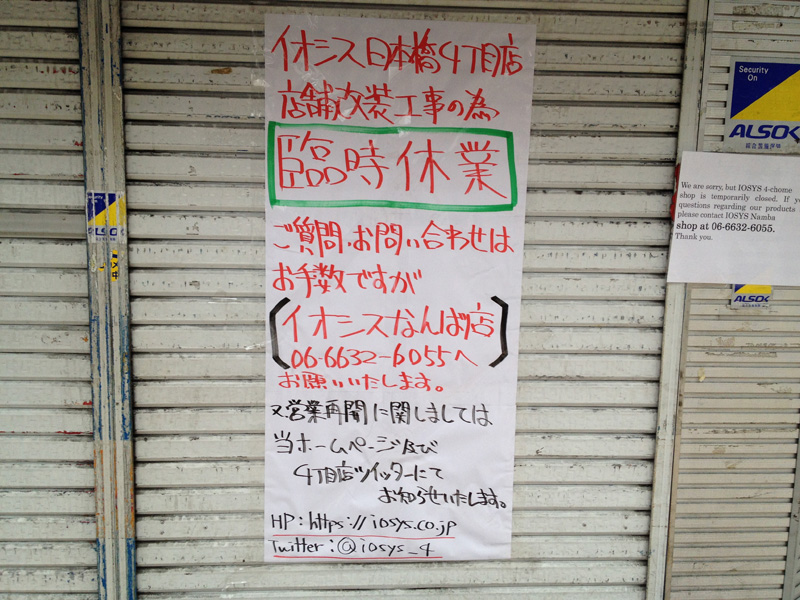 イオシス日本橋4丁目店
店舗改装工事の為
臨時休業
ご質問、お問い合わせは
お手数ですが
イオシスなんば店
06-6632-6055へ
お願いいたします。
又営業再開に関しましては
当ホームページ及び
4丁目店ツイッターにて
お知らせいたします。
HP:https://iosys.co.jp
Twitter:@iosys_4
Security
On
ALSOK
We are sorry, but IOSYS 4-chome
shop is temporarily closed. If yo
questions regarding our products
please contact IOSYS Namba
shop at 06-6632-6055.
Thank you.
ALSOK
ALSOK